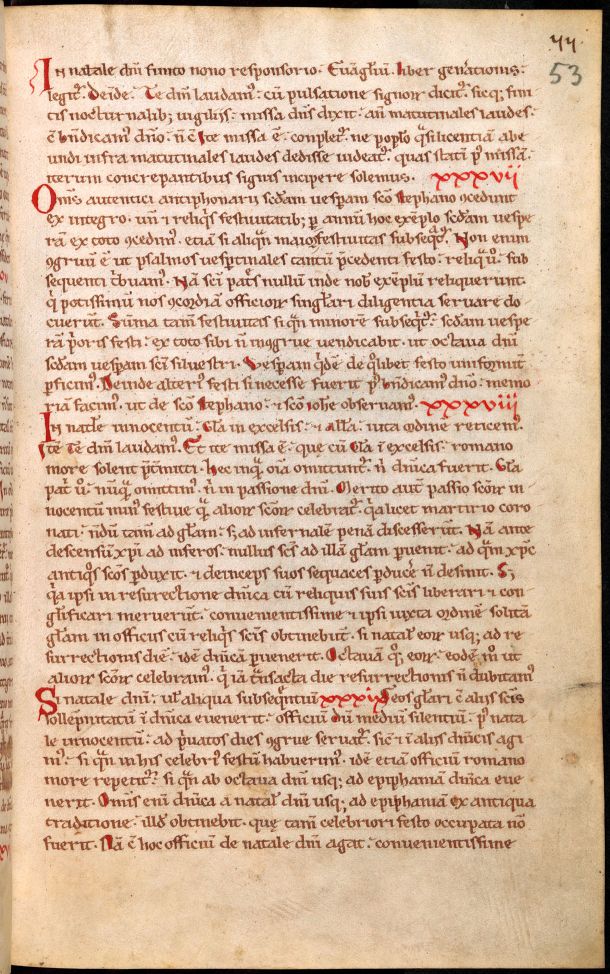 77.
53
In natale dñi finito nono responsorio. Euãgliũ. liber gen̄ationis.
legit᷑. Deinde. Te dm̃ laudam᷒. cũ pulsatione signoꝝ dicit᷑. sicq; fini
tis nocturnalib; uigiliis. missa dñs dixit. añ matutinales laudes.
ẽ bñdicam᷒ dño. ñ ẽ Ite missa ẽ. complet᷑. ne popl̃o q̃si licentiã abe
undi infra matutinales laudes dedisse uideat᷑. quas statĩ p᷒ missã.
iterum concrepantibus signis incipere solemus. xxxvii
Om̃s autentici antiphonarii sc̃dam uesp̃am sc̃o Stephano ↄcedunt
ex integro. uñ ⁊ reliq̃s festiuitatib; ꝑ annũ hoc exẽplo sc̃dam uespe
rã ex toto ↄcedim᷒. etiã si aliq̃n maior festiuitas subseq̃t᷑. Non enim
ↄgruũ ẽ ut psalmos uesꝑtinales cantũ p̃cedenti festo. reliq̃ ũ sub
sequenti t̃buam᷒. Nã sc̃i pat̃s nullũ inde nob̃ exẽplũ reliquerunt.
q̃ potissimũ nos ↄcordiã officioꝝ singl̃ari diligentia seruare do
cuerũt. Sũma tam̃ festiuitas si q̃n minorẽ subseq̃t᷑. sc̃dam uespe
rã p̃oris festi. ex toto sibi ñ inↄgrue uendicabit. ut octaua dñi
sc̃dam uesp̃am sc̃i siluestri. Vesp̃am q̃dẽ de q̃libet festo uniformit̃
ꝑficim᷒. Deinde alteri᷒ festi si necesse fuerit p᷒ bñdicam᷒ dño. memo
riã facim᷒. ut de sc̃o Stephano. ⁊ sc̃o ioh̃e obseruam᷒. xxxviii
In nat̃le innocentũ. Gl̃a in excelsis. ⁊ all̃a. iuxta ordinẽ reticem᷒.
Itẽ Te dm̃ laudam᷒. Et ite missa ẽ. que cũ Gl̃a ĩ excelsis. romano
more solent p̃t̃mitti. Hec inq̃ oĩa omittunt᷑. ñ dñica fuerit. Gl̃a
pat̃ ũ. nũq̃ omittim᷒. ñ in passione dñi. Merito aut̃ passio sc̃oꝝ in
nocentũ min᷒ festiue q̃ alioꝝ sc̃oꝝ celebrat᷑. q̃a licet martirio coro
nati. ñdũ tam̃ ad gl̃am. s; ad infernalẽ penã discesserũt. Nã ante
descensũ xp̃i ad inferos. nullus sc̃s ad illã gl̃am ꝑuenit. ad q̃m xp̃c
antiq̃s sc̃os ꝑduxit. ⁊ deinceps suos sequaces ꝑducẽ ñ desinit. S;
q̃a ipsi in resurrectione dñica cũ reliquis suis sc̃is liberari ⁊ con
gl̃ificari meruerũt. conuenientissime ⁊ ipsi iuxta ordinẽ solitã
gl̃am in officiis cũ reliq̃s sc̃is obtinebũt. si natal᷒ eoꝝ usq; ad re
surrectionis diẽ. idẽ dñicã ꝑuenerit. Octauã q̃; eoꝝ. eodẽ m̊ ut
alioꝝ sc̃oꝝ celebram᷒. q̃ iã t̃nsacta die resurrectionis ñ dubitam᷒
Si natale dñi. uł aliqua subseq̃ntiũ xxxix eos gl̃ari ẽ aliis sc̃is
sollẽpnitatũ ĩ dñica euenerit. officiũ Dũ mediũ silentiũ. p᷒ nata
le innocentũ. ad p̃uatos dies ↄgrue seruat᷑. sic̃ ⁊ ĩ aliis dñicis agi
m᷒. si q̃n in his celebr̃ festũ habuerim᷒. idẽ etiã officiũ romano
more repetit᷑. si q̃n ab octaua dñi usq; ad epiphaniã dñica eue
nerit. Om̃is enĩ dñica a natal̃ dñi usq; ad epiphaniã ex antiqua
traditione. illd̃ obtinebit. quę tam̃ celebriori festo occupata nõ
fuerit. Nã ẽ hoc officiũ de natale dñi agat. conuenientissime